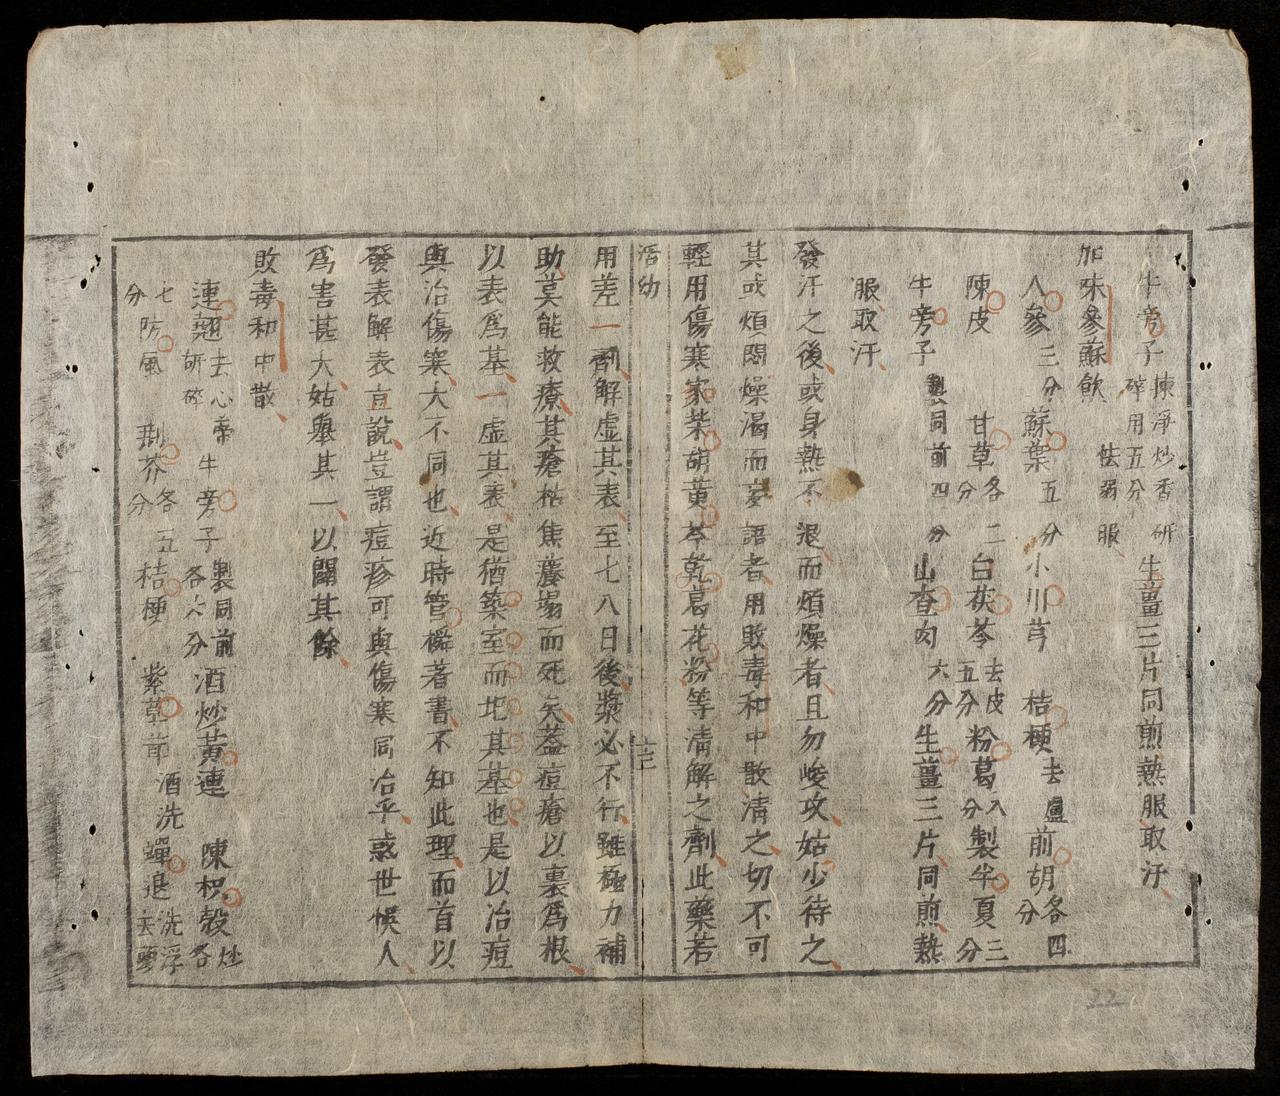 牛旁子揀淨炒香研碎用五分生薑三片同煎熱服取汗
加味參蘇飲 怯弱服
人參三分蘇葉五分小川芎 桔梗去蘆前胡各四分
陳皮 甘草各二分白茯苓去皮五分粉葛八分製半夏三分
牛旁子製同前四分山查肉六分生薑三片同煎熱
服取汗
發汗之後或身熱不退而煩燥者且勿峻攻姑少待之
其或煩悶燥渴而妄語者用敗毒和中散清之切不可
輕用傷寒家柴胡黃芩乾葛花粉等清解之劑此藥若
活幼 十三
用差一劑解虛其表至七八日後漿必不行雖極力補
助莫能救療其瘡枯焦癢塌而死矣蓋痘瘡以裏為根
以表為基一虛其表是猶築室而圯其基也是以治痘
與治傷寒大不同也近時管櫓著書不知此理而首以
發表解表亘說豈謂痘疹可與傷寒同治乎惑世悞人
為害甚大姑舉其一以闢其餘
敗毒和中散
連翹去心蒂研碎牛旁子製同前各六分酒炒黃連 陳枳殼炒各
七分防風 荆芥各五分桔梗 紫草茸酒洗蟬退洗浮去頭
22